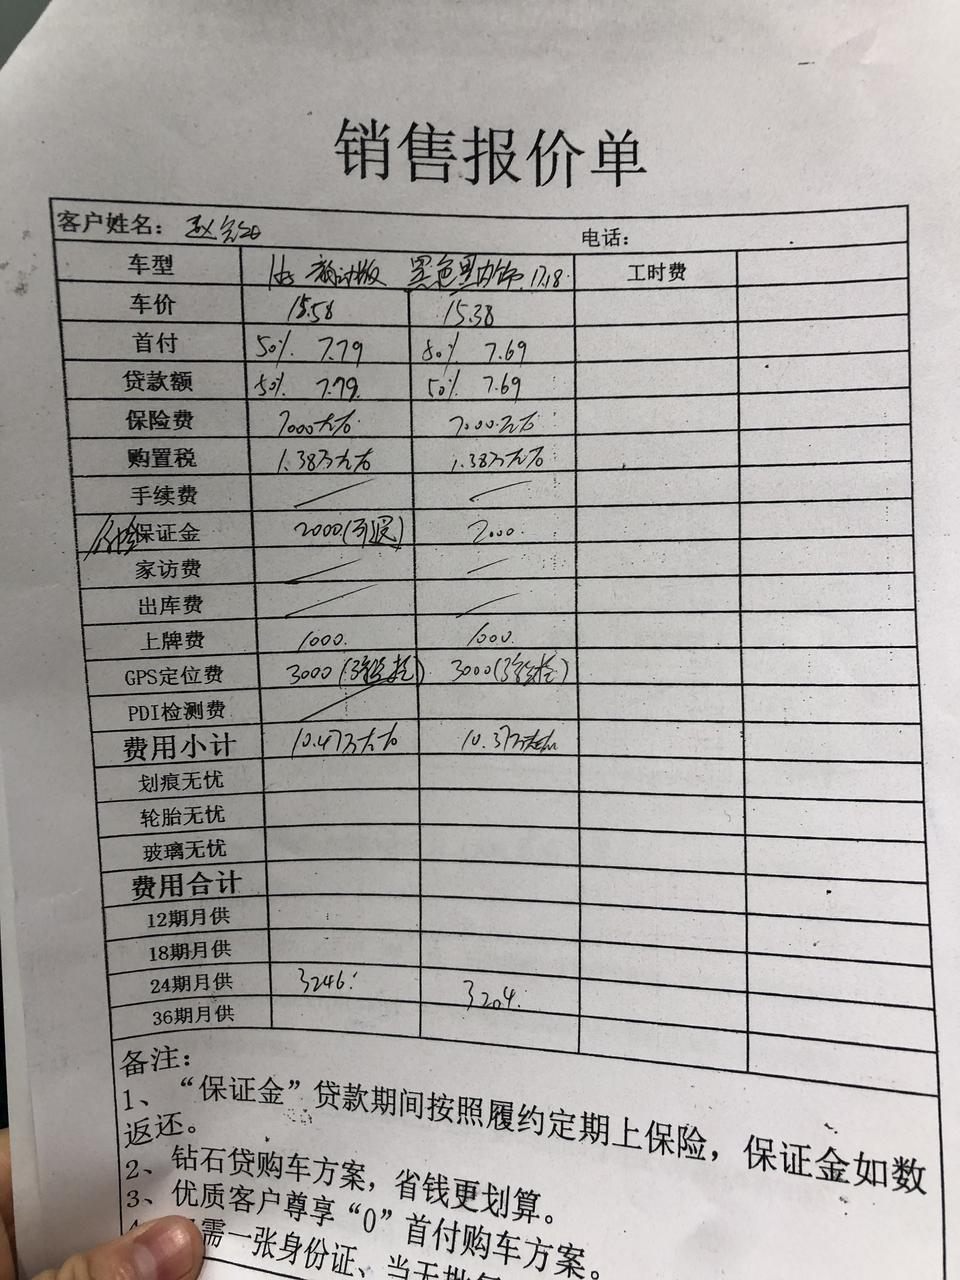 销售报价单
客户姓名： 赵 电话：
车型 黑色黑内饰 17.18 工时费
车价 15.58 15.38
首付 50% 7.79 50% 7.69
贷款额 50% 7.79 50% 7.69
保险费 7000左右 7000左右
购置税 1.38万左右 1.38万左右
手续费
保证金 2000(可退) 2000
家访费
出库费
上牌费 1000 1000
GPS定位费 3000 3000
PDI检测费
费用小计 10.47万左右 10.37万左右
划痕无忧
轮胎无忧
玻璃无忧
费用合计
12期月供
18期月供
24期月供 3246 3204
36期月供
备注：
1、“保证金”贷款期间按照履约定期上保险，保证金如数
返还。
2、钻石贷购车方案，省钱更划算。
3、优质客户尊享“0”首付购车方案。
需一张身份证、当天批